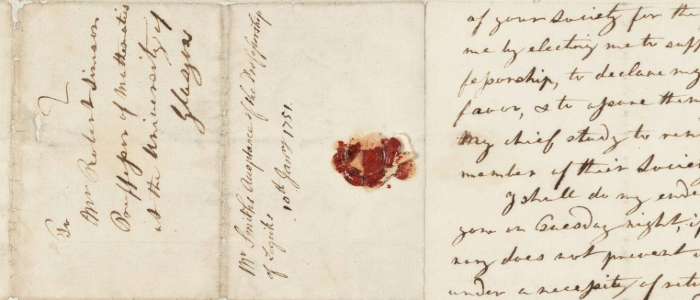 To
Mr Robert Simson
Professor of Mathematics
at the University of
Glasgow
Mr Smith's Acceptance of the Professorship
of Logike 10th Janry 1751.
of your Society for the
me by electing me to supp
fessorship, to declare my
favor, & to assure them
My chief study to ren
member of their Societ
I shall do my ende
you on Tuesday night, if
nary does not prevent
under a necessity of ret